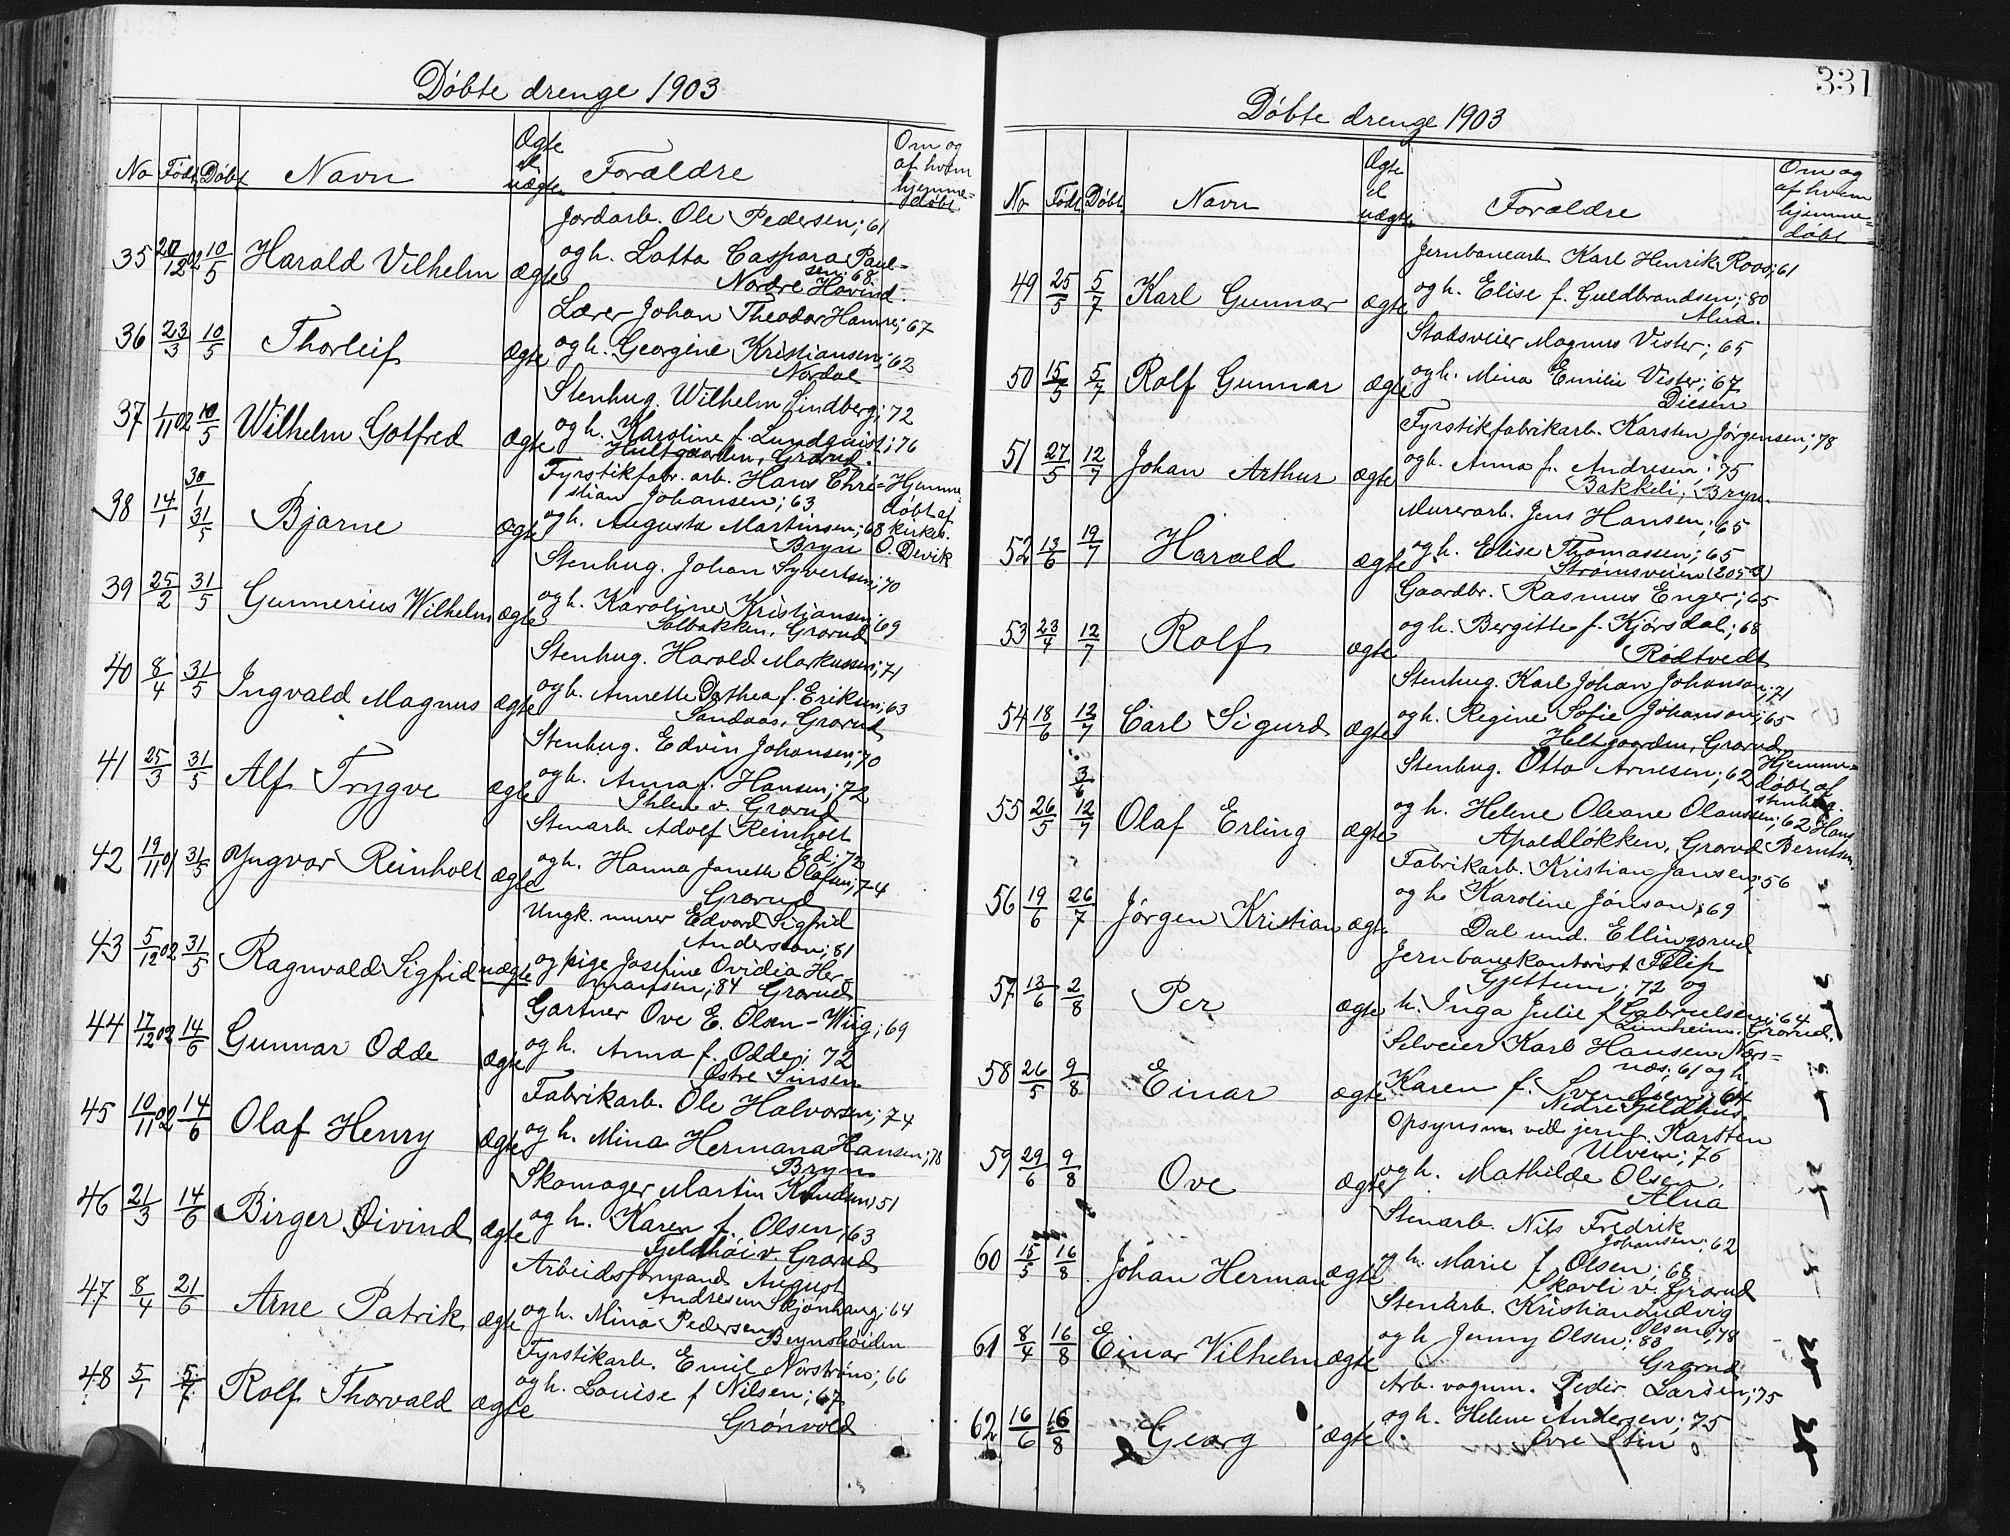 Døbte drenge 1903
No Født Døbt Navn Ægte el uægte Forældre Om og af hvem hjemme= døbt
Jordarb. Ole Pedersen; 61
35 20/12 02 10/5 Harald Vilhelm ægte og h. Lotta Caspara Paul=
sen; 68
Nordre Hovind.
Lærer Johan Theodor Hamre; 67
36 23/3 10/5 Thorleif ægte og h. Georgine Kristiansen; 62
Nordal
Stenhug. Wilhelm Lindberg; 72
37 1/11 02 10/5 Wilhelm Gotfred ægte og h. Karoline f. Lundqvist; 76
Hultgaarden, Grorud.
Fyrstikfabr. arb. Hans Chri= Hjemme
30/1 stian Johansen; 63 døbt af
38 14/1 31/5 Bjarne ægte og h. Augusta Martinsen; 68 kirkes.
Bryn O. Devik
Stenhug. Johan Syvertsen; 70
39 25/2 31/5 Gunnerius Wilhelm ægte og h. Karoline Kristiansen; 69
Solbakken, Grorud
Stenhug. Harald Markussen; 71
40 8/4 31/5 Ingvald Magnus ægte og h. Annette Dothea f. Eriksen; 63
Sandaas, Grorud
Stenhug. Edvin Johansen; 70
41 25/3 31/5 Alf Trygve ægte og h. Anna f. Hansen; 72
Ihlen v. Grorud
Stenarb. Adolf Reinholt
Ed; 72
42 19/11 01 31/5 Yngvar Reinholt ægte og h. Hanna Janette Olafsen; 74
Grorud
Ungk. murer Edvard Sigfrid
Andersson; 81
43 5/12 02 31/5 Ragnvald Sigfrid uægte og pige Josefine Ovidia Her=
mansen; 84 Grorud
Gartner Ove E. Olsen-Wiig; 69
44 17/12 02 14/6 Gunnar Odde ægte og h. Anna f. Odde; 72
Østre Sinsen
Fabrikarb. Ole Halvorsen; 74
45 10/11 02 14/6 Olaf Henry ægte og h. Mina Hermana Hansen; 78
Bryn
Skomager Martin Knudsen 51
46 21/3 14/6 Birger Øivind ægte og h. Karen f. Olsen; 63
Fjeldhøi v. Grorud
Arbeidsformand August
Andresen Skjønhaug; 64
47 8/4 21/6 Arne Patrik ægte og h. Mina Pedersen
Brynshøiden
Fyrstikarb. Emil Norstrøm; 66
48 5/1 5/7 Rolf Thorvald ægte og h. Louise f Nilsen; 67
Grønvold
331
Døbte drenge 1903
No Født Døbt Navn Ægte el uægte Forældre Om og af hvem hjemme= døbt
Jernbanearb Karl Henrik Roos; 61
49 25/5 5/7 Karl Gunnar ægte og h. Elise f. Guldbrandsen; 80
Alna.
Stadsveier Magnus Vister; 65
50 15/5 5/7 Rolf Gunnar ægte og h. Mina Emilie Vister; 67
Diesen
Fyrstikfabrikarb. Karsten Jørgensen; 78
51 27/5 12/7 Johan Arthur ægte og h. Anna f. Andresen; 75
Bakkeli, Bryn.
Murerarb. Jens Hansen; 65
52 13/6 19/7 Harald ægte og h. Elise Thomassen; 65
Strømsveien (205 B)
Gaardbr. Rasmus Enger; 65
53 23/4 12/7 Rolf ægte og h. Bergitte f. Kjørsdal; 68
Rødtvedt
Stenhug. Karl Johan Johanson; 71
54 18/6 12/7 Carl Sigurd ægte og h. Regine Sofie Johanson; 65
Heltgaarden, Grorud
Stenhug. Otto Arnesen; 62 Hjemme= døbt af
3/6 stenhug.
55 26/5 12/7 Olaf Erling ægte og h. Helene Oleane Olaussen; 62 Hans
Apaldløkken, Grorud Berntsen.
Fabrikarb. Kristian Jansen; 56
56 19/6 26/7 Jørgen Kristian ægte og h. Karoline Jónson; 69
Dal und. Ellingsrud
Jernbanekontorist Filip
Gjettum; 72 og
57 13/6 2/8 Per ægte h. Inga Julie f. Gabrielsen; 64
Lunheim, Grorud.
Selveier Karl Hansen Næs=
næs; 61 og h.
58 26/5 9/8 Einar ægte Karen f. Svendsen; 64
Nedre Fjeldhus
Opsynsm ved jernb. Karsten
Ulven; 76
59 29/6 9/8 Ove ægte og h. Mathilde Olsen.
Alna
Stenarb. Nils Fredrik
Johansen; 62
60 15/5 16/8 Johan Herman ægte og h. Marie f Olsen; 68
Skovli v. Grorud
Stenarb. Kristian Ludvig
Olsen; 78
61 8/4 16/8 Einar Vilhelm ægte og h Jenny Olsen; 83
Grorud
Arb. vognm. Peder Larsen; 75
62 16/6 16/8 Georg ægte og h. Helene Andersen; 75
Øvre Øtin